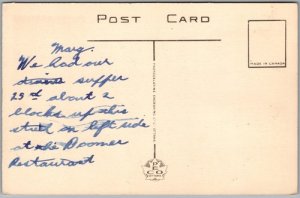 POST CARD
MADE IN CANADA
Marg.
We had our
dinner supper
23rd about 2
blocks up this
street on left side
at the Boomer
Restaurant
PECO